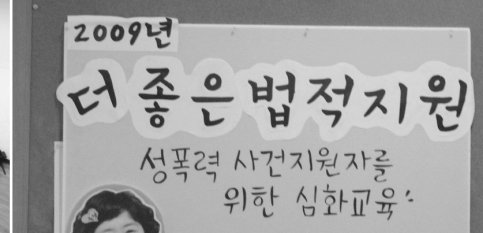 2009년
더 좋은 법적지원
성폭력 사건지원자를
위한 심화교육: